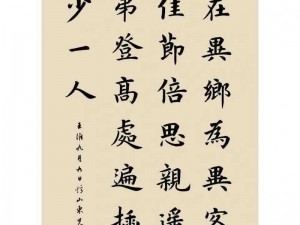 在異鄉為異客
佳節倍思親遙
弟登高處遍插
少一人
王維九月九日憶山東